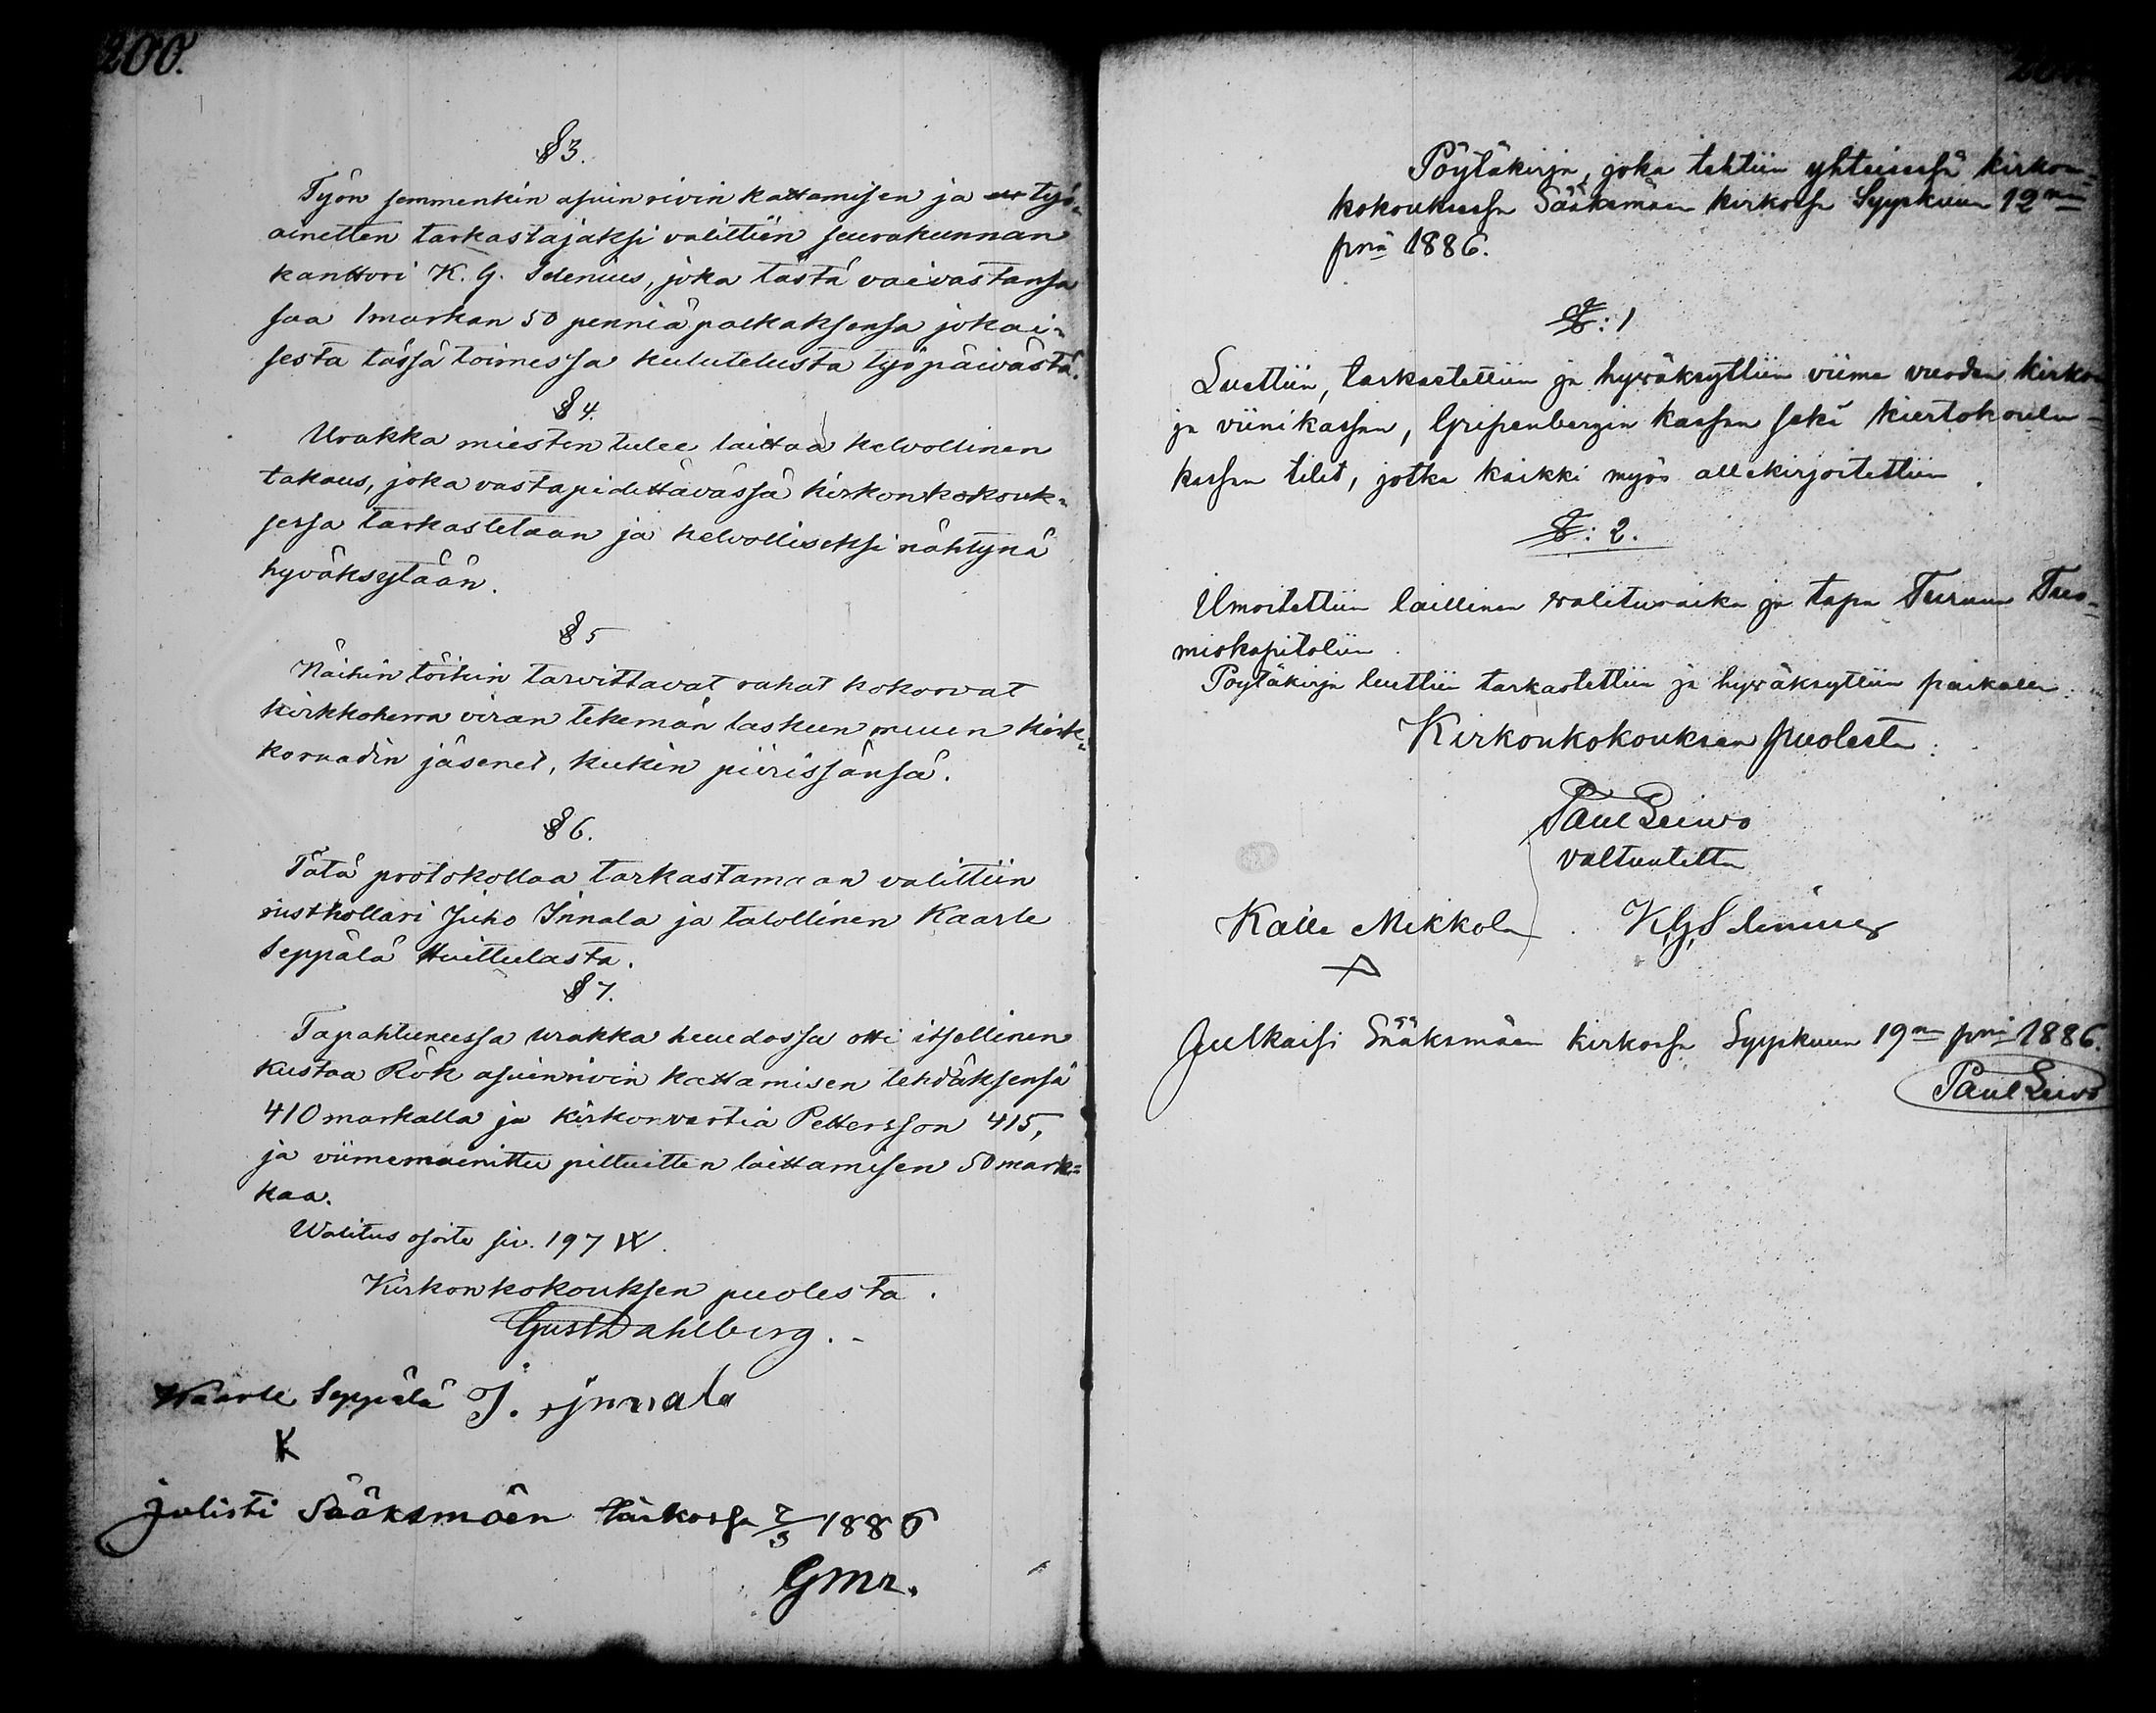 200.
§ 3.
Työn semmenkin asuin rivin kattamisen ja työ=
ainetten tarkastajaksi valittiin seurakunnan
kanttori K. G. Idenius, joka tästä vaivastansa
saa 1 markan 50 penniä palkaksensa jokai=
sesta tässä toimessa kulutelusta työpäivästä.
§ 4.
Urakka miesten tulee laittaa kelvollinen
takaus, joka vastapidettävässä kirkonkokouk=
sessa tarkastetaan ja kelvolliseksi nähtynä
hyväksytään.
§ 5
Näihin töihin tarvittavat rahat kokoovat
kirkkoherra viran tekemän laskun muun kirk=
koraadin jäsenet, kukin piirissänsä.
§ 6.
Tätä protokollaa tarkastamaan valittiin
rusthollari Juho Innala ja talollinen Kaarle
Seppälä Huittulasta.
§ 7.
Tapahtuneessa urakka huudossa otti itsellinen
Kustaa Rök asuinrivin kattamisen tehdäksensä
410 markalla ja kirkonvartia Pettersson 415,
ja viimemainittu pittuitten laittamisen 50 mark=
kaa.
Walitus osoite siv. 197 IV.
Kirkonkokouksen puolesta.
Gust Dahlberg.
Kaarle Seppälä J. Innala
K
julisti Sääksmäen kirkossa 1886
Gmr.
Pöytäkirja, joka tehtiin yhteisessä kirkon=
kokouksessa Sääksmäen kirkossa Syyskuun 12 m
pnä 1886.
§: 1
Luettiin, tarkastettiin ja hywäksyttiin viime vuoden kirkon
ja viinikassan, Gripenbergin kassan sekä kiertokoulu=
kassan tilit, jotka kaikki myös allekirjoitettiin.
§: 2.
Ilmoitettiin laillinen walitusaika ja tapa Turun Tuo=
miokapitoliin.
Pöytäkirja luettiin tarkastettiin ja hywäksyttiin paikalla.
Kirkonkokouksen puolesta:
Paul Leiwo
valtuutettu
Kalle Mikkola K. G. Idenius
Julkaisi Sääksmäen kirkossa Syyskuun 19 m pnä 1886.
Paul Leiwo